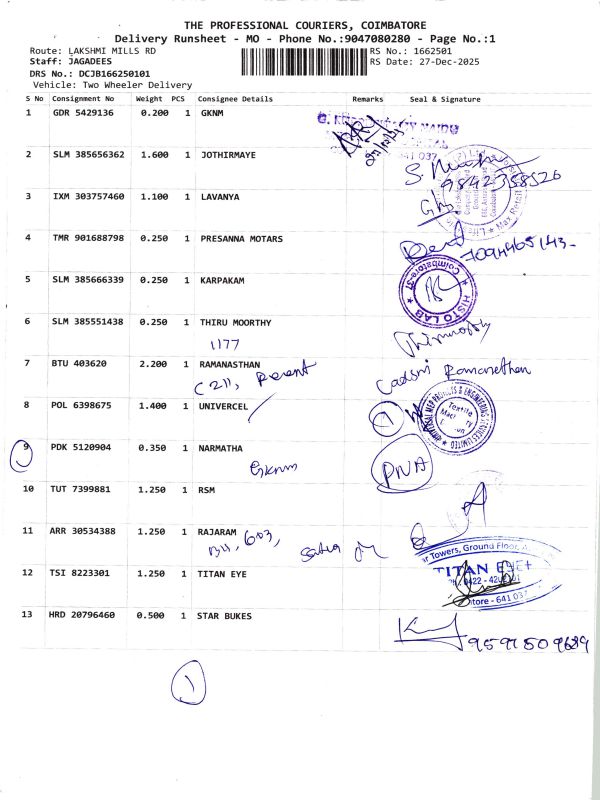 THE PROFESSIONAL COURIERS, COIMBATORE
Delivery Runsheet - MO - Phone No.:9047080280 - Page No.:1
Route: LAKSHMI MILLS RD
RS No.: 1662501
Staff: JAGADEES
RS Date: 27-Dec-2025
DRS No.: DCJB166250101
Vehicle: Two Wheeler Delivery
S No Consignment No Weight PCS Consignee Details Remarks Seal & Signature
1 GDR 5429136 0.200 1 GKNM
641 037
2 SLM 385656362 1.600 1 JOTHIRMAYE
9842358526
3 IXM 303757460 1.100 1 LAVANYA
4 TMR 901688798 0.250 1 PRESANNA MOTARS
7094465143-
5 SLM 385666339 0.250 1 KARPAKAM
Coimbatore-37
HISTO LAB
6 SLM 385551438 0.250 1 THIRU MOORTHY
1177
Thirumoorthy
7 BTU 403620 2.200 1 RAMANASTHAN
C 211,
Ramanathan
8 POL 6398675 1.400 1 UNIVERCEL
1
9 PDK 5120904 0.350 1 NARMATHA
GKNM
PNA
10 TUT 7399881 1.250 1 RSM
11 ARR 30534388 1.250 1 RAJARAM
603,
Towers, Ground Floor,
12 TSI 8223301 1.250 1 TITAN EYE
TITAN EYE+
641 037
13 HRD 20796460 0.500 1 STAR BUKES
9597509689
1